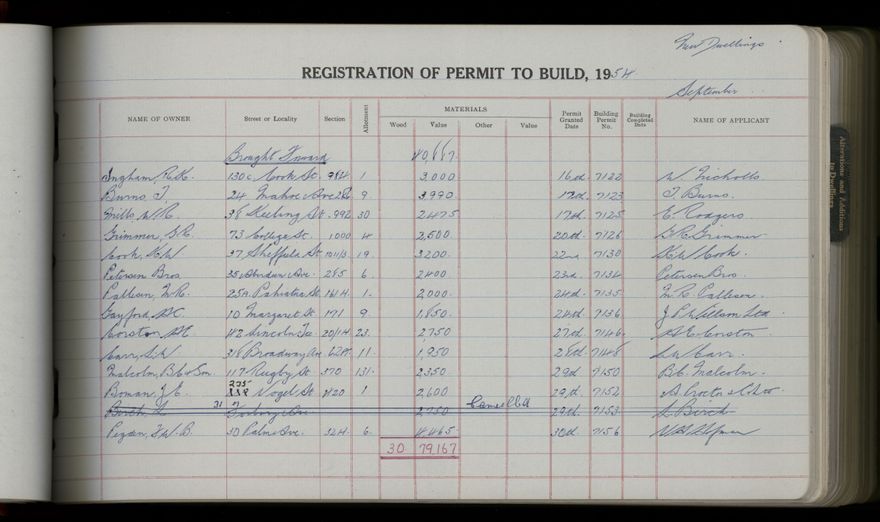 New Dwellings
REGISTRATION OF PERMIT TO BUILD, 1954
September
NAME OF OWNER Street or Locality Section Allotment MATERIALS Wood Value Other Value Permit Granted Date Building Permit No. Building Completed Date NAME OF APPLICANT
Brought Forward 40,887
Ingham 130c Cook St. 984 1 3,000 16th 7122 W. Nicholls
Burns, T. 24 Mahoe 9 3,990 17th 7123 T. Burns.
Mills, W.R. 38 Keeling St. 992 30 2475 17th 7125 E. Rodgers
Grimmer, G.R. 73 College St. 1000 4 2,500 20th 7126 G.R. Grimmer
Cook, K.W. 37 Sheffield St. 19 3200 22nd 7130 K.W. Cook.
Petersen Bros. 35 Aberdeen Ave. 285 6 2400 23rd 7134 Petersen Bros.
25A Pahiatua St. 1614 1 2,000 24th 7135
Gayford, 10 Margaret St. 171 9 1,850 24th 7136 J.P. Willson Ltd
Corston, 142 Lincoln Tce. 20/14 23 2750 27th 7146 Corston
Carr, 318 Broadway Ave. 11 1,950 28th 7148 Carr.
Malcolm, B.C. & Son. 117 Rugby St. 370 131 2350 29th 7150 B.C. Malcolm.
Boman, J.E. 275 Vogel St. 1420 1 2,600 29th 7152
Birch, L. 31 2,750 Cancelled 29th 7153 L. Birch
30 Palm Ave. 324 6 4,465 30th 7156
30 79,167
Alterations and Additions to Dwellings